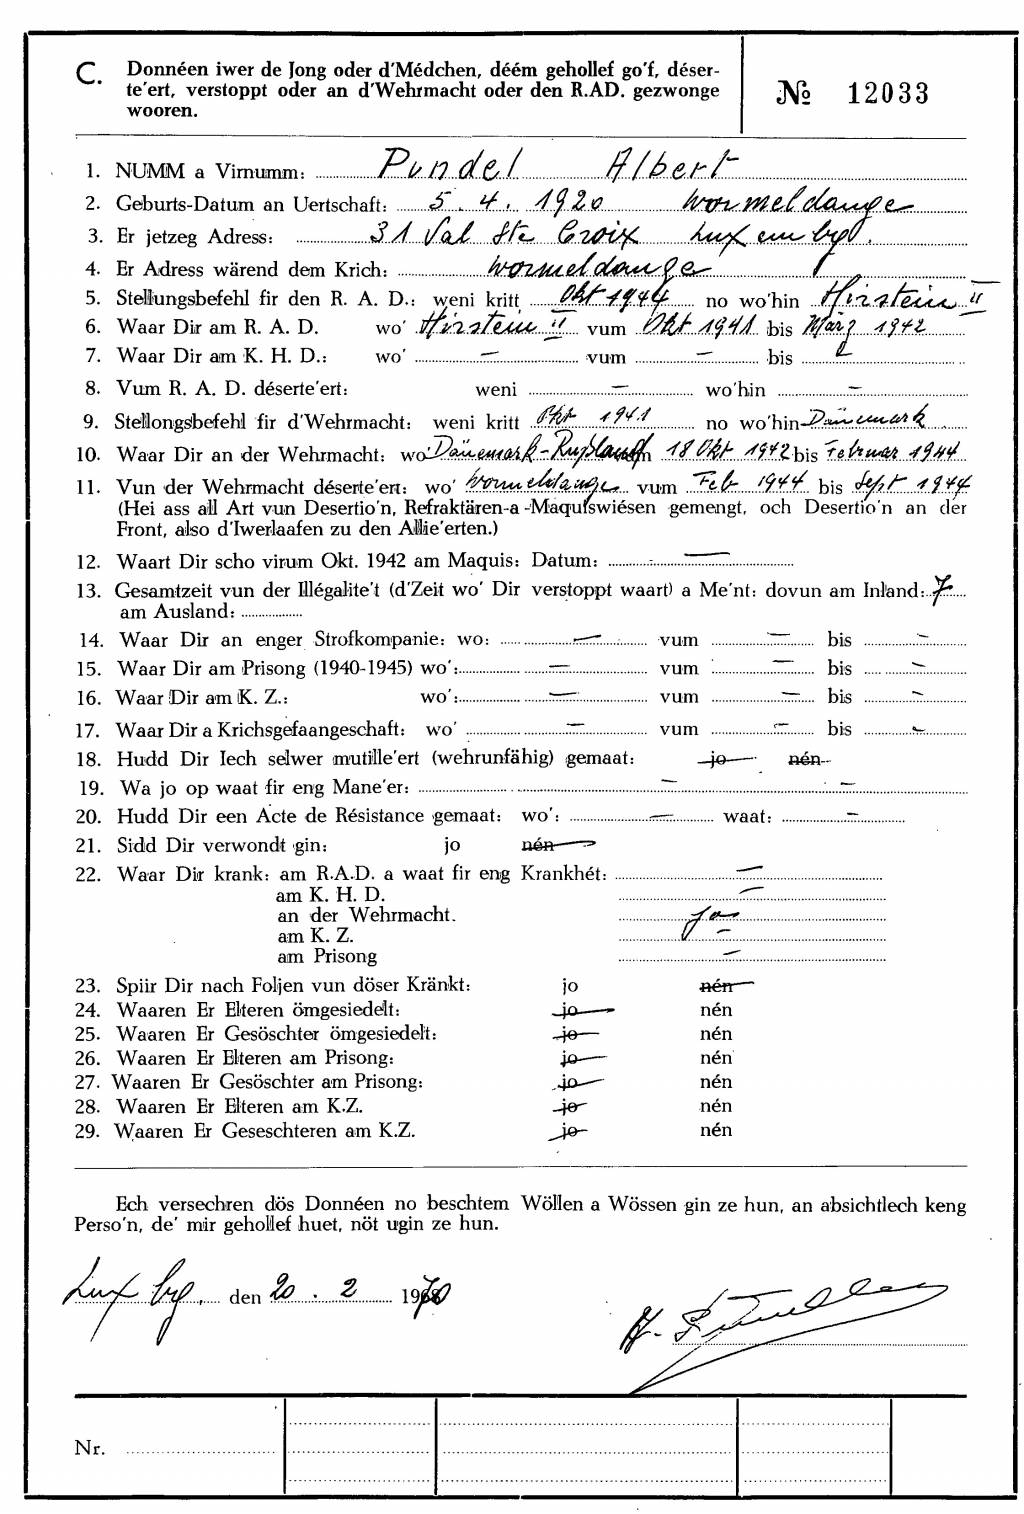 C. Donnéen iwer de Jong oder d'Médchen, déém gehollef go'f, déser-
te'ert, verstoppt oder an d'Wehrmacht oder den R.AD. gezwonge
wooren.
№ 12033
1. NUMM a Virnumm: Pundel Albert
2. Geburts-Datum an Uertschaft: 5. 4. 1920 Wormeldange
3. Er jetzeg Adress: 31 Val Ste Croix Luxembg.
4. Er Adress wärend dem Krich: Wormeldange
5. Stellungsbefehl fir den R. A. D.: weni kritt Okt 1944 no wo'hin Hirstein II
6. Waar Dir am R. A. D. wo' Hirstein II vum Okt 1941 bis März 1942
7. Waar Dir am K. H. D.: wo' — vum — bis
8. Vum R. A. D. déserte'ert: weni — wo'hin —
9. Stellongsbefehl fir d'Wehrmacht: weni kritt Okt 1941 no wo'hin Dänemark
10. Waar Dir an der Wehrmacht: wo Dänemark-Rußland 18 Okt 1942 bis Februar 1944
11. Vun der Wehrmacht déserte'ert: wo' Wormeldange vum Feb 1944 bis Sept 1944
(Hei ass all Art vun Desertio'n, Refraktären-a-Maquiswiésen gemengt, och Desertio'n an der
Front, also d'Iwerlaafen zu den Allie'erten.)
12. Waart Dir scho virum Okt. 1942 am Maquis: Datum: —
13. Gesamtzeit vun der Illégalite't (d'Zeit wo' Dir verstoppt waart) a Me'nt: dovun am Inland: 7
am Ausland:
14. Waar Dir an enger Strofkompanie: wo: — vum — bis —
15. Waar Dir am Prisong (1940-1945) wo': — vum — bis —
16. Waar Dir am K. Z.: wo': — vum — bis —
17. Waar Dir a Krichsgefaangeschaft: wo' — vum — bis —
18. Hudd Dir Iech selwer mutille'ert (wehrunfähig) gemaat: jo nén
19. Wa jo op waat fir eng Mane'er: — —
20. Hudd Dir een Acte de Résistance gemaat: wo': — waat: —
21. Sidd Dir verwondt gin: jo nén
22. Waar Dir krank: am R.A.D. a waat fir eng Krankhét: —
am K. H. D. —
an der Wehrmacht. jo
am K. Z. —
am Prisong —
23. Spiir Dir nach Foljen vun döser Kränkt: jo nén
24. Waaren Er Elteren ömgesiedelt: jo nén
25. Waaren Er Gesöschter ömgesiedelt: jo nén
26. Waaren Er Elteren am Prisong: jo nén
27. Waaren Er Gesöschter am Prisong: jo nén
28. Waaren Er Elteren am K.Z. jo nén
29. Waaren Er Geseschteren am K.Z. jo nén
Ech versechren dös Donnéen no beschtem Wöllen a Wössen gin ze hun, an absichtlech keng
Perso'n, de' mir gehollef huet, nöt ugin ze hun.
Luxbg, den 20. 2 1970
Nr.